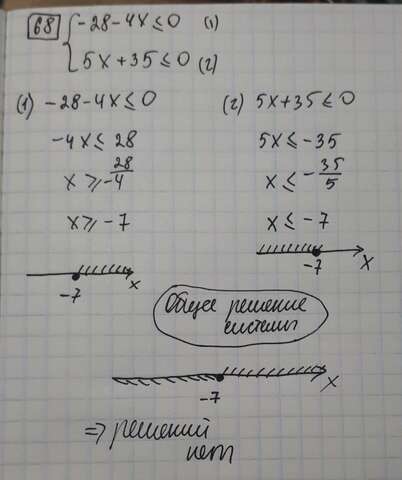 68 { -28-4x≤0 (1)
5x+35≤0 (2)
(1) -28-4x≤0
-4x≤28
x≥ 28/-4
x≥-7
-7 x
(2) 5x+35≤0
5x≤-35
x≤-35/5
x≤-7
-7 x
Общее решение
системы
-7 x
⇒ решений
нет